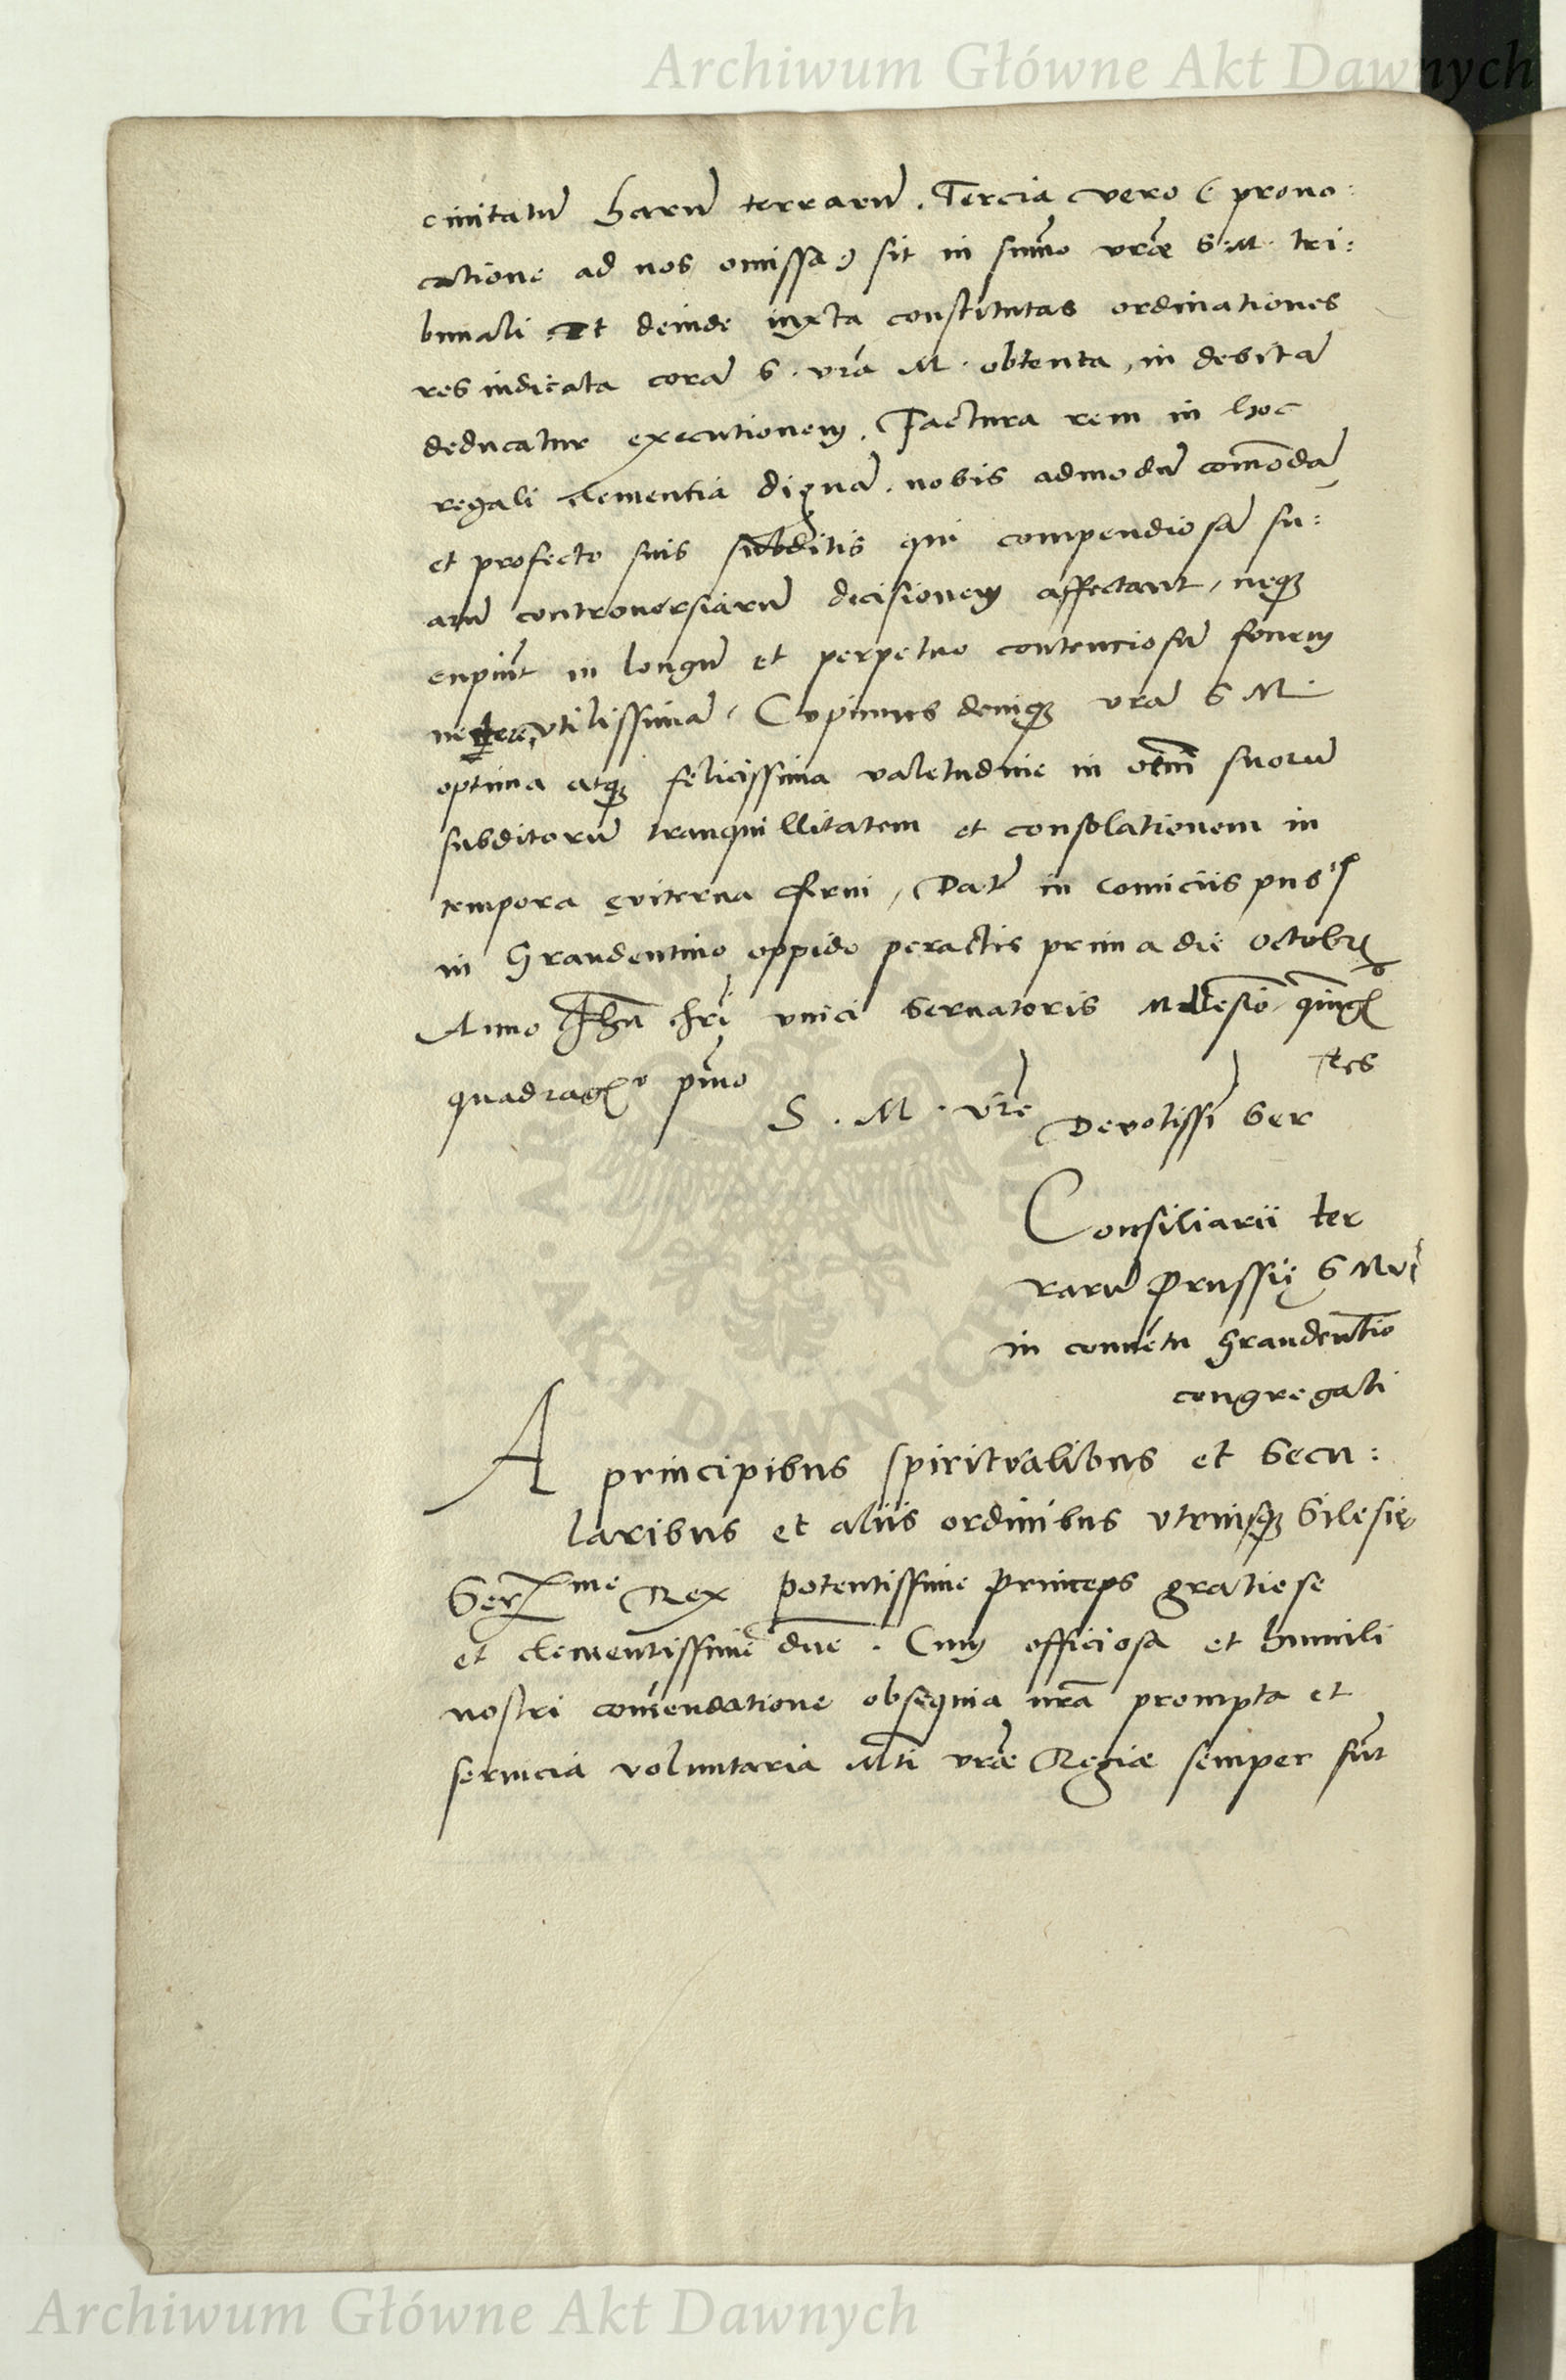 Archiwum Główne Akt Dawnych
ciuitatū harū terrarū. Tercia vero (prouo:
catione ad nos omissa) sit in sūmo vr̄ae S. M. tri:
bunali et deinde iuxta constitutas ordinationes
res iudicata corā S. vrā M. obtenta, in debitā
deducatur executionem. Factura rem in hoc
regali clementia dignā. nobis admodū com̄odā
et profecto suis subditis qui compendiosā su:
arū controuersiarū decisionem affectant, neq3
cupiūt in longū et perpetuo contenciosū funem
vtilissimā. Cupimus deniq3 vrā S M.
optima atq3 felicissima valetudine in om̄i suorū
subditorū tranquillitatem et consolationem in
tempora eviterna frui, Dat̄ in comiciis pns
in Graudentino oppido peractis prima die octobr
Anno Jhū chri vnici Seruatoris Millesio quing
quadrag° p̄mo
S. M. vr̄e
Devotissī Ser
tes
Consiliarii ter
rarū Prussię S M vr̄
in conuētu Graudent̄io
congregati
A principibus spiritualibus et Secu:
laribus et aliis ordinibus vtriusq3 Silesię
Ser me Rex potentissime princeps gratiose
et clementissime dn̄e. Cum officiosa et humili
nostri com̄endatione obsequia nr̄a prompta et
seruicia voluntaria Mti vr̄ae Regiae semper sūt
ARCHIWUM GŁÓWNE AKT DAWNYCH
Archiwum Główne Akt Dawnych